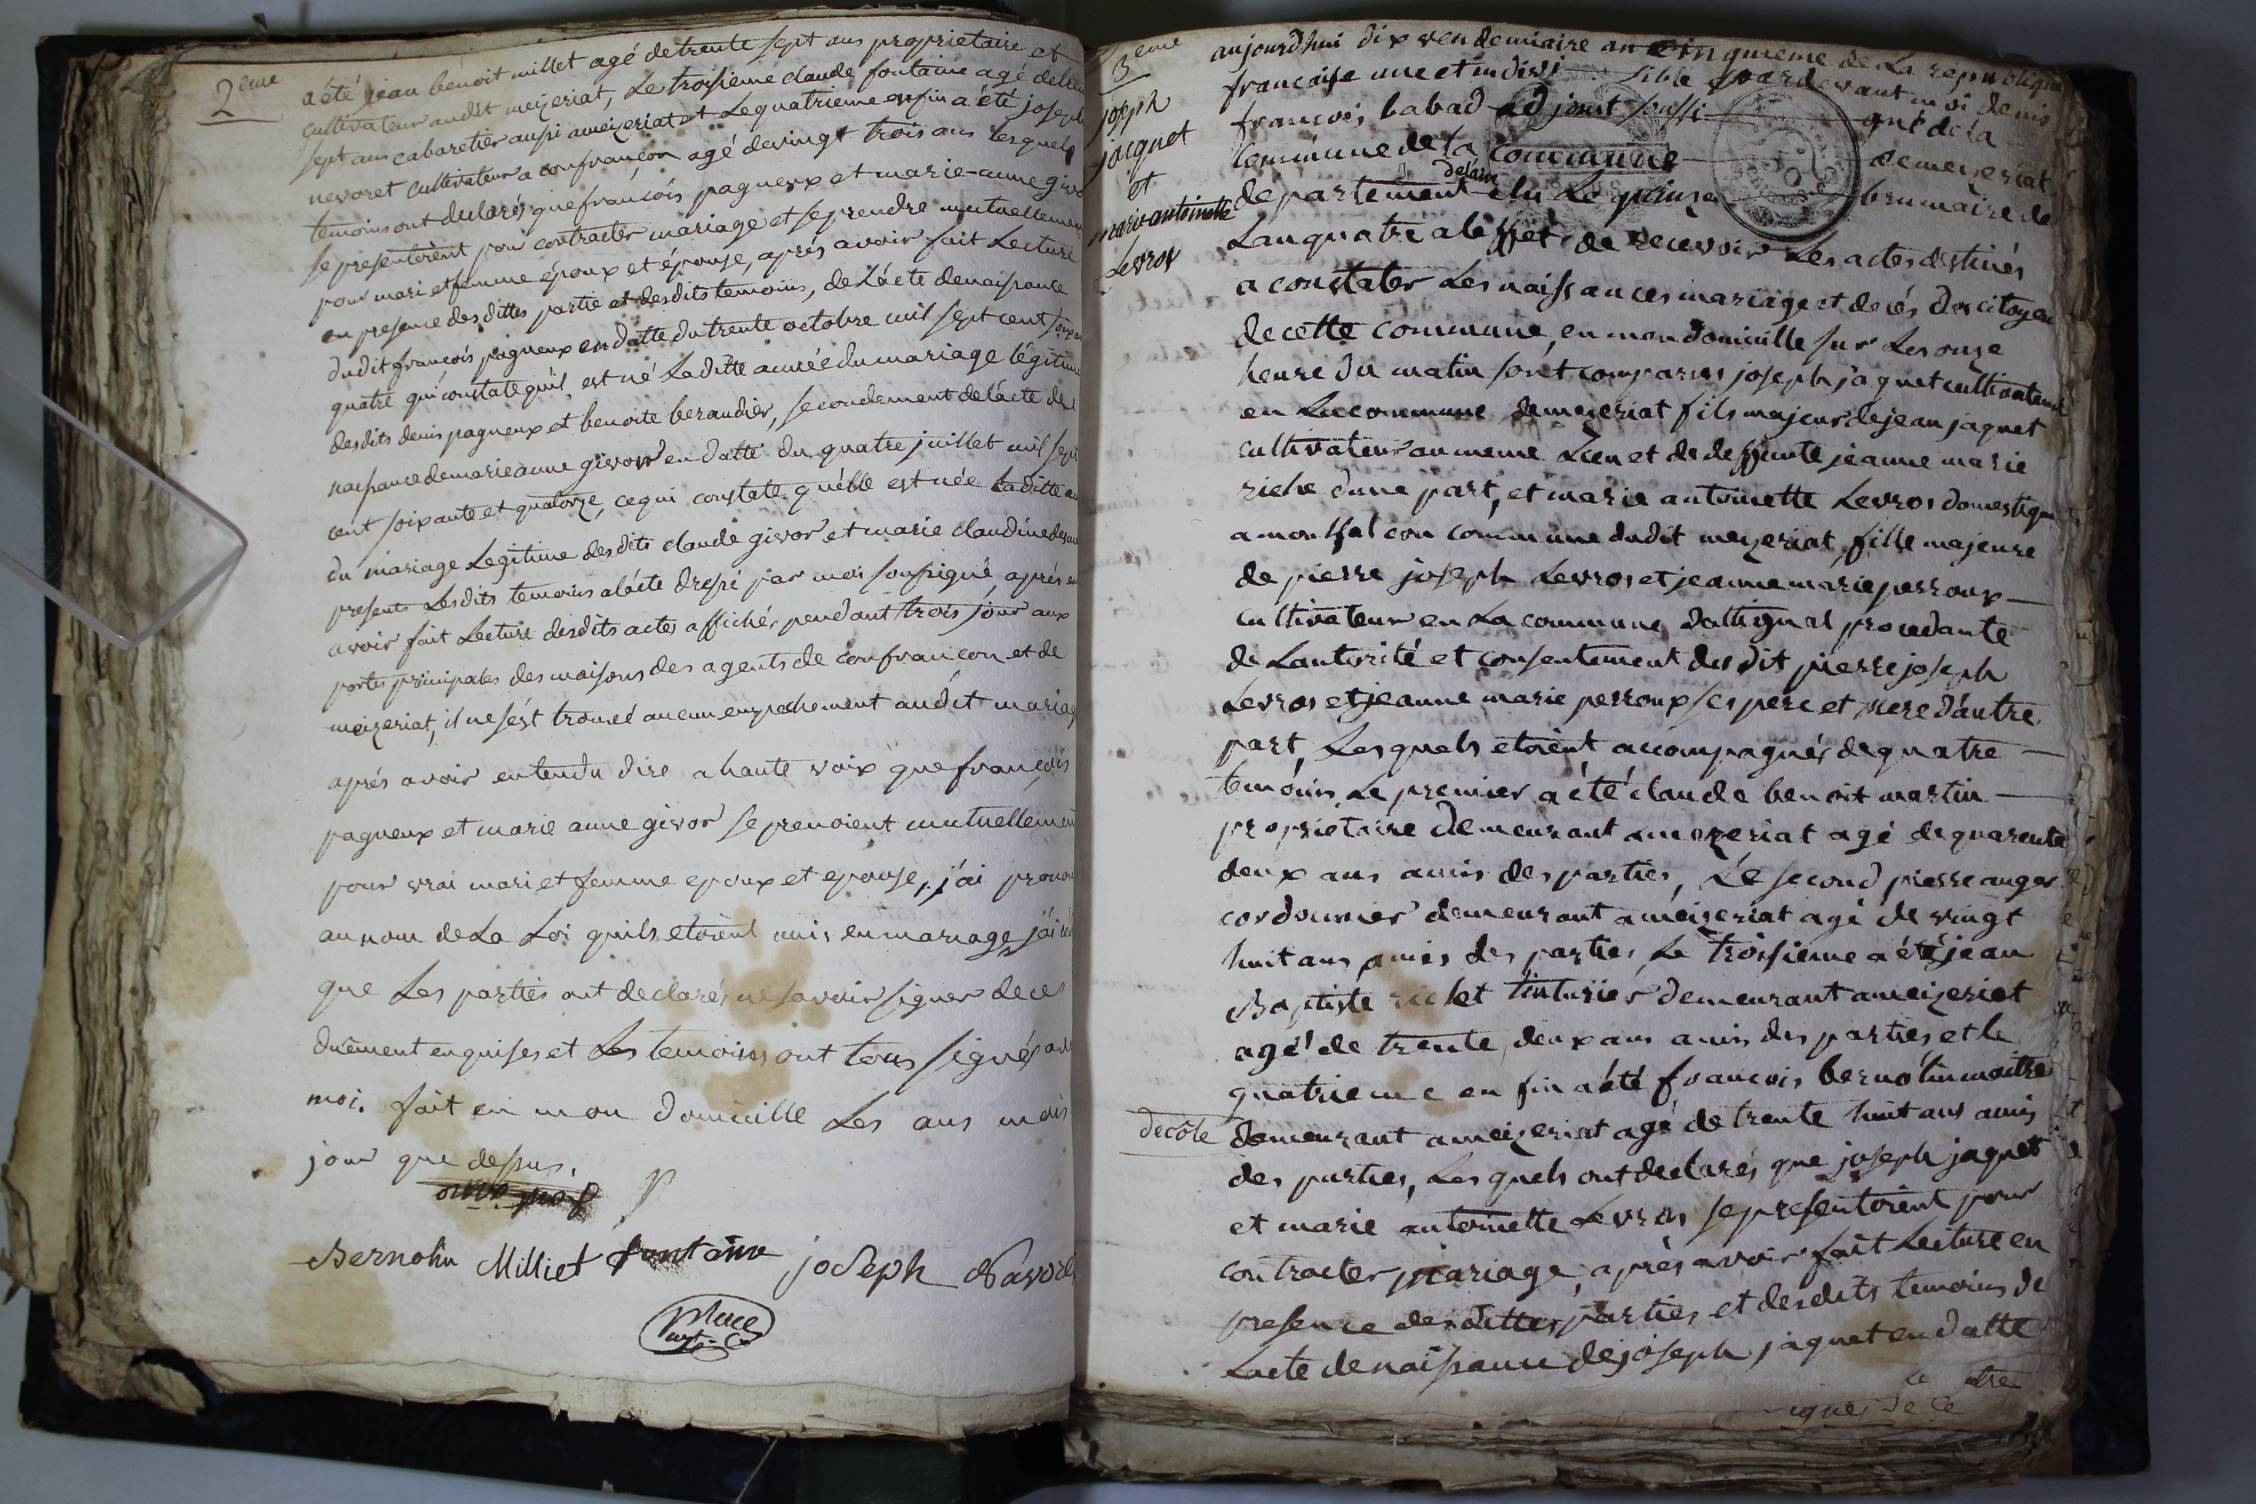 2eme
a été jean benoit millet agé de trente sept ans proprietaire et
cultivateur audit meizeriat, Le troisieme claude fontaine agé de
sept ans cabaretier aussi a meizeriat et Le quatrieme enfin a été joseph
nevoret cultivateur a confrancon agé de vingt trois ans lesquels
temoins ont declarés que françois pagneux et marie-anne givo
se presentoient pour contracter mariage et se prendre mutuellemen
pour mari et femme époux et épouse, aprés avoir fait Lecture
en presence des dittes partie et desdits temoins, de L'acte de naissance
dudit françois pagneux en datte du trente octobre mil sept cent soixan
quatre qui constate quil est né Laditte année du mariage légitime
desdits denis pagneux et benoite beraudier, secondement de lacte de
naissance de marie anne givor en datte du quatre juillet mil sept
cent soixante et quatorze, ce qui constate quélle est née laditte an
du mariage Legitime desdits claude givor et marie claudine
presents Lesdits temoins a lacte dressé par moi soussigné, aprés en
avoir fait Lecture desdits actes affichés pendant trois jour aux
portes principales des maisons des agents de confrancon et de
meizeriat, il ne s'ést trouvé aucun empechement audit mariag
aprés avoir entendu dire a haute voix que françois
pagneux et marie anne givor se prenoient mutuellement
pour vrai mari et femme epoux et epouse, j'ai pronon
au nom de La Loi quils etoient unis en mariage j'ai
que Les parties ont declarés ne savoir signer de ce
duement enquises et Les temoins ont tous signés avec
moi. fait en mon domicille Les ans mois
jour que dessus.
Bernolin Milliet fontaine joseph Navoret
3eme
joseph
jacquet
et
marie antoinette
Levros
aujourdhui dix vendemiaire an cinquieme de La republique
francaise une et indivi sible pardevant moi denis
francois babad adjoint soussi gné de la
commune de la commune de mezeriat
departement delain elu Le quinze brumaire de
Lan quatre a leffét de recevoir Les actes destinés
a constater Les naissances mariage et decés des citoyen
de cette commune, en mon domicille sur Les onze
heure du matin sont comparus joseph jaquet cultivateur
en La commune de mezeriat fils majeur de jean jaquet
cultivateur au meme Lieu et de deffunte jeanne marie
riche d'une part, et marie antoinette Levros domestique
a montfalcon commune dudit mezeriat, fille majeure
de pierre joseph Levros et jeanne marie perroux
cultivateur en La commune dattignat procedante
de Lautorité et consentement des dit pierre joseph
Levros et jeanne marie perroux ses pere et mere d'autre
part, Lesquels etoient accompagnés de quatre
temoins Le premier a été claude benoit martin
proprietaire demeurant a mezeriat agé de quarente
deux ans amis des parties, Le second pierre auger
cordonnier demeurant a meizeriat agé de vingt
huit ans amis des parties, Le troisieme a été jean
Baptiste richet tinturier demeurant a meizeriat
agé de trente deux ans amis des parties et le
quatrieme en fin a été francois bernolin maitre
decôle demeurant a meizeriat agé de trente huit ans amis
des parties, Lesquels ont declarés que joseph jaquet
et marie antoinette Levros se presentoient pour
contracter mariage, aprés avoir fait Lecture en
presence des dittes parties et desdits temoins de
Lacte de naissance de joseph jaquet en datte